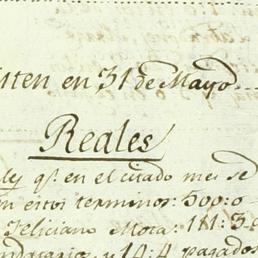 isten en 31 de Mayo
Reales
ley qe. en el citado mes se
en estos terminos: 500:0
Feliciano Mota: 111:3
y 14:4 pagados